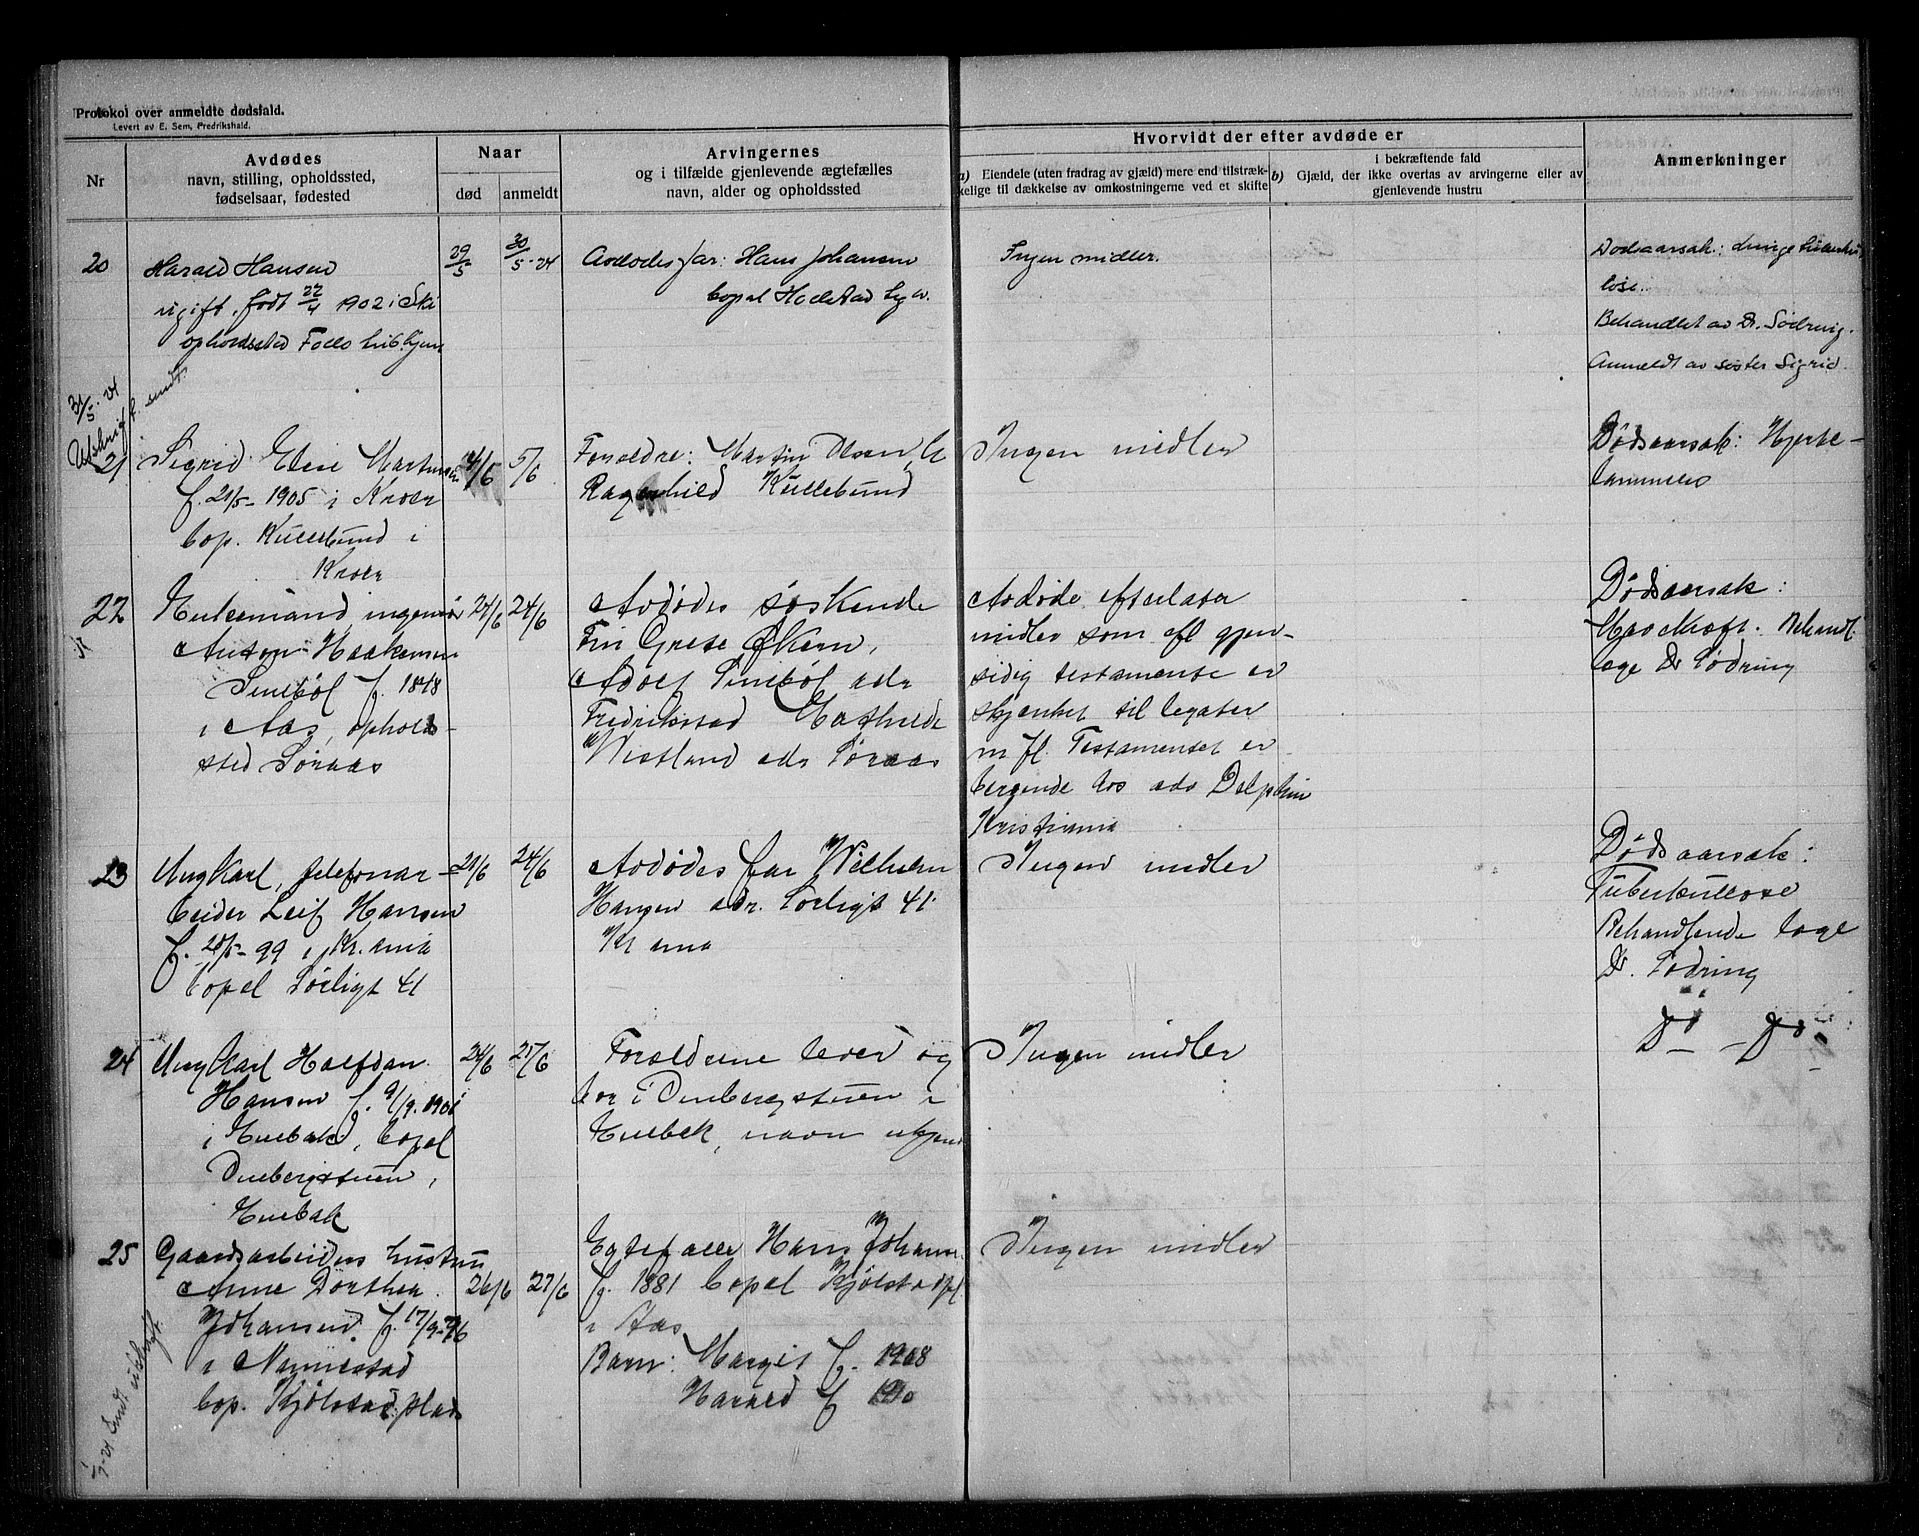 Protokol over anmeldte dødsfald.
Levert av E. Sem, Fredrikshald.
Nr
Avdødes
navn, stilling, opholdssted,
fødselsaar, fødested
Naar
død
anmeldt
Arvingernes
og i tilfælde gjenlevende ægtefælles
navn, alder og opholdssted
Hvorvidt der efter avdøde er
a) Eiendele (uten fradrag av gjæld) mere end tilstræk-
kelige til dækkelse av omkostningerne ved et skifte
b)
i bekræftende fald
Gjæld, der ikke overtas av arvingerne eller av
gjenlevende hustru
Anmerkninger
20
Harald Hansen
ugift. født 22/4 1902 i Ski
opholdssted Follo tub.hjem
29/5
30/5-24
Avdødes far: Hans Johansen
bopæl Holstad
Ingen midler.
Dødsaarsak: lungetuberku
lose.
Behandlet av Dr. Sødring.
Anmeldt av søster Sigrid.
31/5-24
Utskrift sendt
21
Sigrid Elise Martinsen
f. 21/5-1905 i Kroer
bop. Kullebund i
Kroer
4/6
5/6
Foreldre: Martin Olsen &
Ragnhild Kullebund
Ingen midler
Dødsaarsak: Hjerte-
lammelse
22
Enkemand ingeniør
Anton Haakensen
Simebøl f. 1848
i Aas, ophold-
sted Søraas
24/6
24/6
Avdødes søskende
Fru Grete Økern,
Adolf Simebøl adr
Fredrikstad Mathilde
Westlund adr Søraas
Avdøde efterlater
midler som efl gjen-
sidig testamente er
skjenket til legater
m fl. Testamentet er
beroende hos adv Delphin
Kristiania
Dødsaarsak:
Mavekræft. Behandl.
læge Dr Sødring
23
Ungkarl, telefonar-
beider Leif Hansen
f. 28/5-99 i Kr.ania
bopæl Sørligt 41
21/6
24/6
Avdødes far Wilhelm
Hansen adr. Sørligt 41
Kr ania
Ingen midler
Dødsaarsak:
Tuberkullose
Behandlende læge
Dr. Sødring
24
Ungkarl Halfdan
Hansen f. 9/9.1901
i Enebak, bopæl
Duebergstuen,
Enebak
24/6
25/6
Foreldrene lever og
bor i Duebergstuen i
Enebak, navn ukjent
Ingen midler
Do - Do
25
Gaardsarbeiders hustru
Anne Dorthea
Johansen. f. 17/9-76
i Nannestad
bop. Kjølstad plads
26/6
27/6
Egtefælle Hans Johans.
f. 1881 bopæl Kjølstadpl.
i Aas
Barn: Margit f. 1908
Harald f 1910
Ingen midler
Sendt utskrift